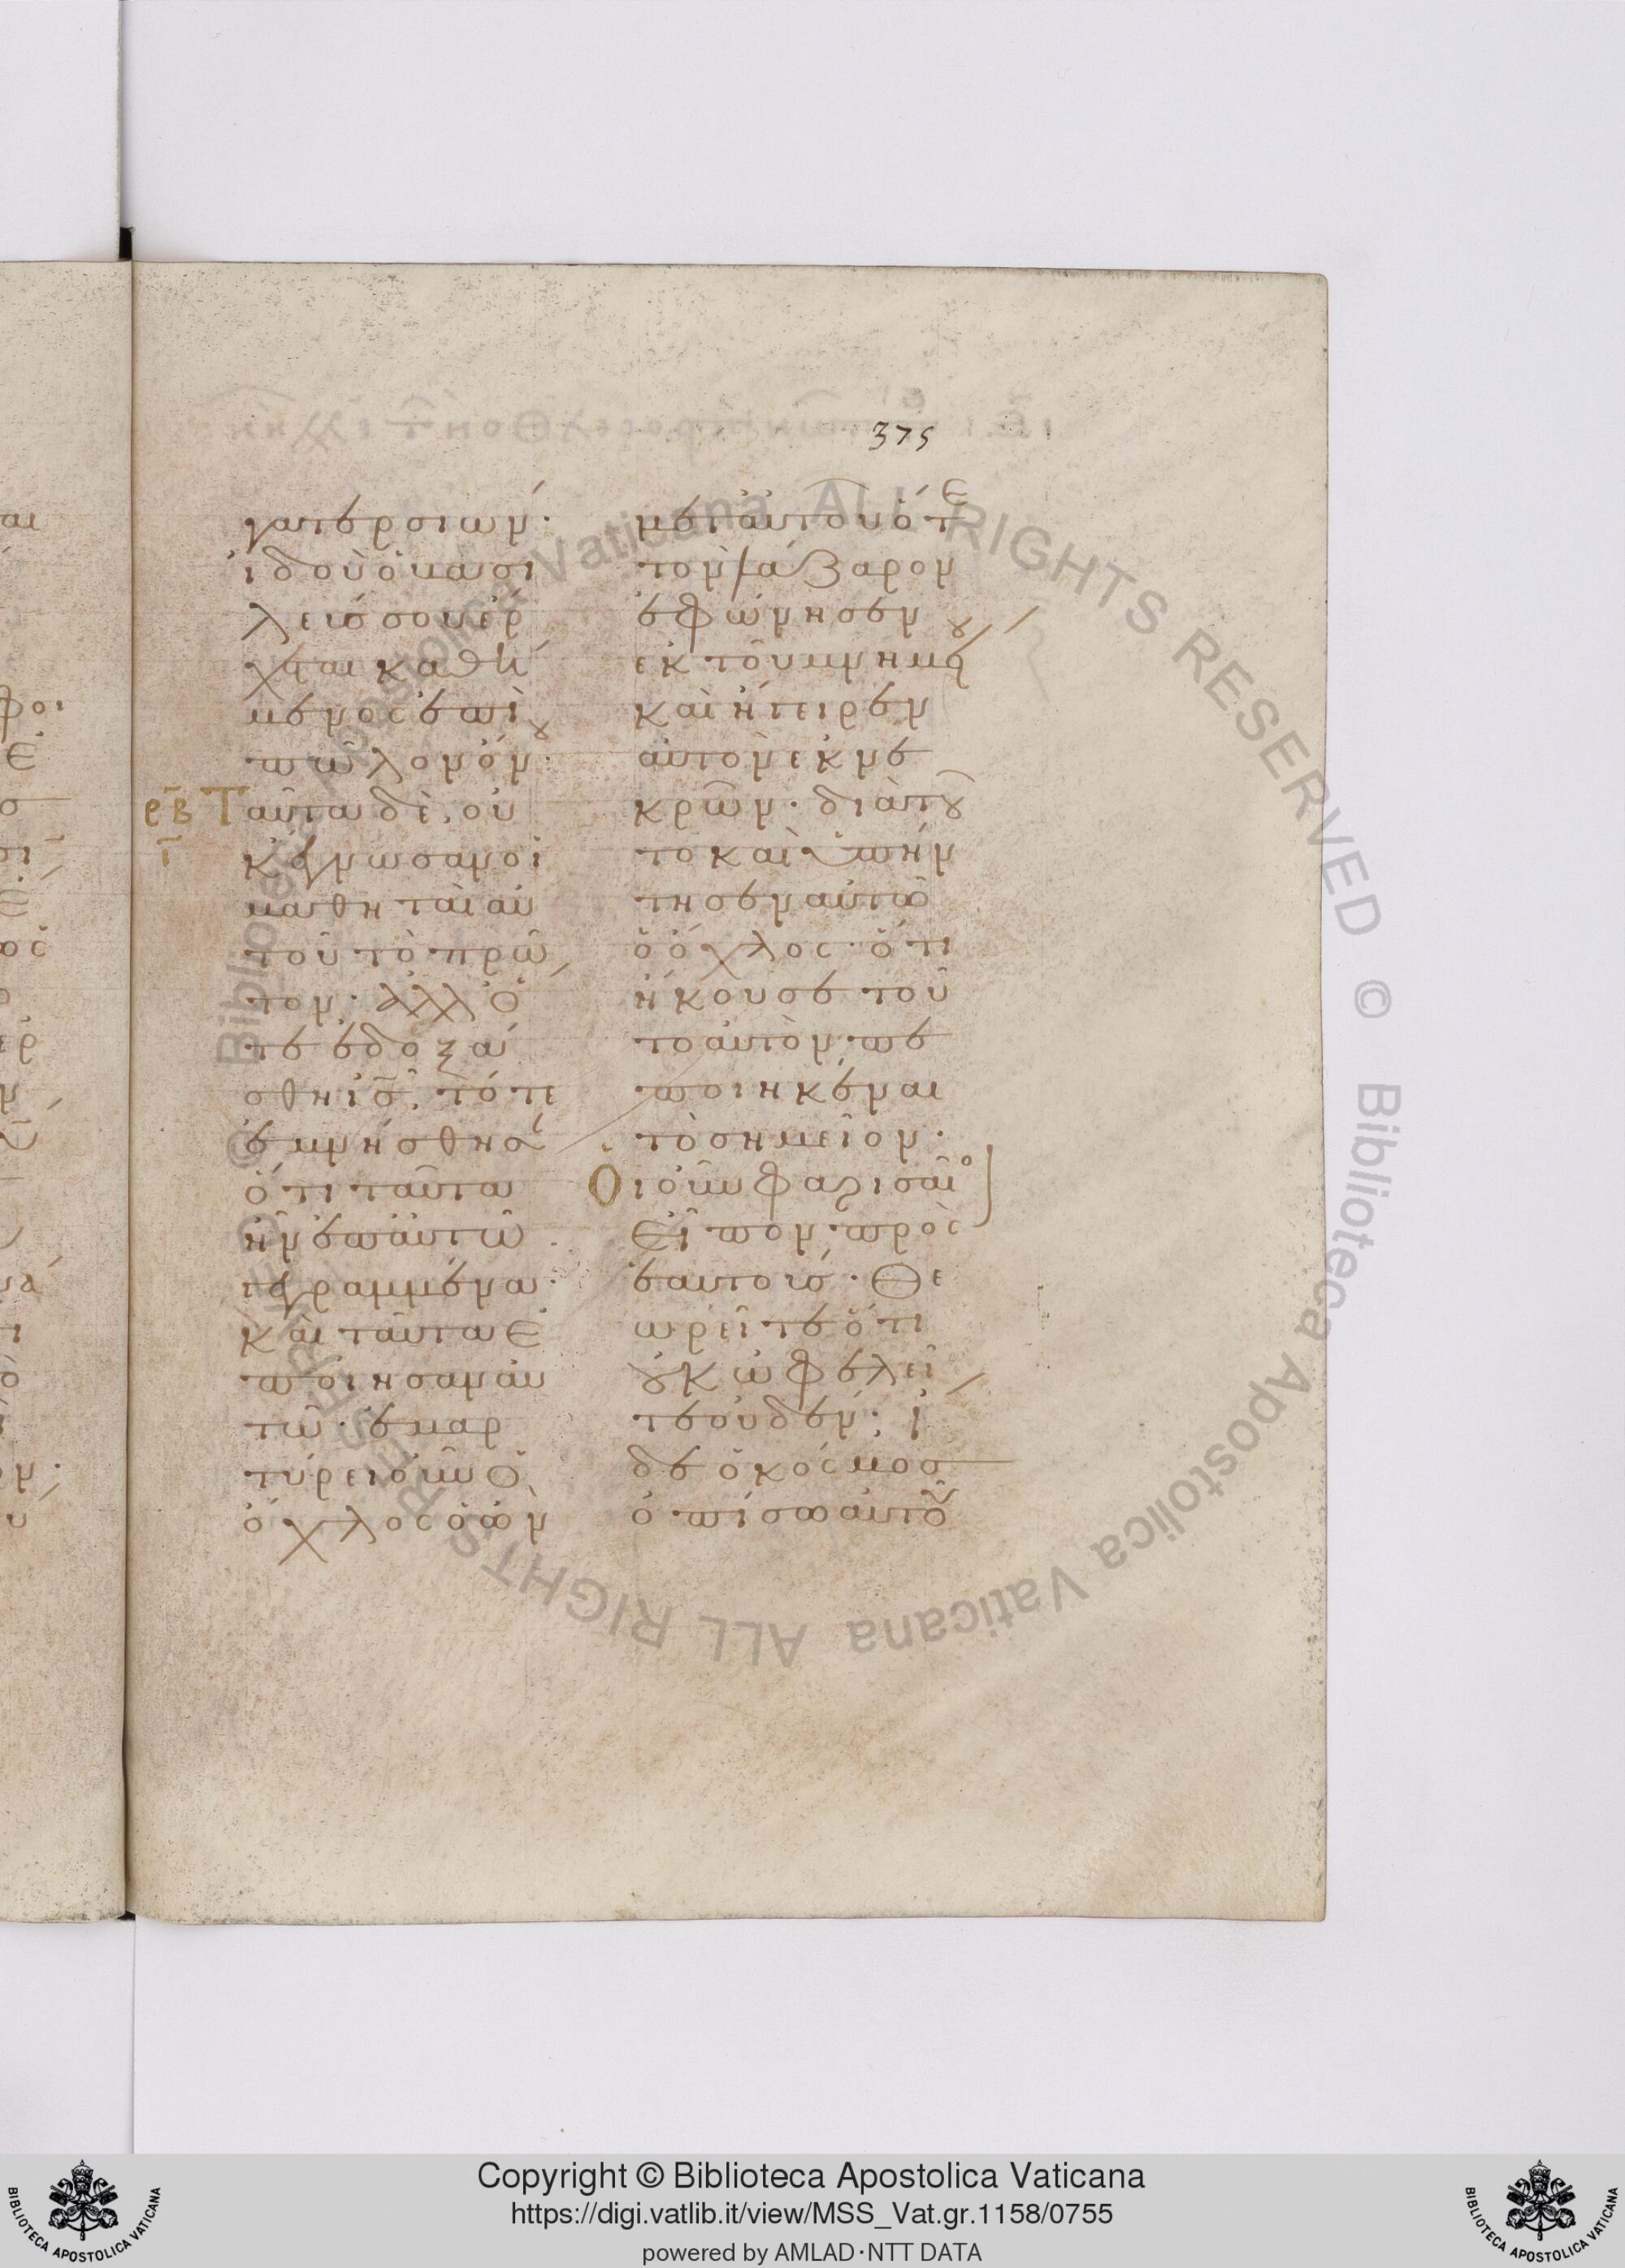 375
γατερ σιών·
ἰδοὺ ὁ βασι
λεύς σου ἔρ
χεται καθή
μενος ἐπὶ
πῶλον ὄνου·
ρβ
Ταῦτα δὲ, οὐ
ι
κ ἔγνωσαν οἱ
μαθηταὶ αὐ
τοῦ τὸ πρῶ
τον· ἀλλ' ὅ
τε ἐδοξά
σθη ις, τότε
ἐμνήσθησαν
ὅτι ταῦτα
ἦν ἐπ' αὐτῶ
γεγραμμένα·
καὶ ταῦτα ἐ
ποίησαν αὐ
τῶ· ἐμαρ
τύρει οὖν ὁ
ὄχλος ὁ ὢν
μετ' αὐτοῦ ὅτε
τὸν λάζαρον
ἐφώνησεν
ἐκ τοῦ μνημείου
καὶ ἤγειρεν
αὐτὸν ἐκ νε
κρῶν· διὰ τοῦ
το καὶ ὑπήν
τησεν αὐτῶ
ὁ ὄχλος· ὅτι
ἤκουσε τοῦ
το αὐτὸν πε
ποιηκέναι
τὸ σημεῖον·
Οἱ οὖν φαρισαῖοι
εἶπον πρὸς
ἑαυτούς· Θε
ωρεῖτε ὅτι
οὐκ ὠφελεῖ
τε οὐδέν· ἴ
δε ὁ κόσμος
ὀπίσω αὐτοῦ
Copyright © Biblioteca Apostolica Vaticana
https://digi.vatlib.it/view/MSS_Vat.gr.1158/0755
powered by AMLAD·NTT DATA
BIBLIOTECA APOSTOLICA VATICANA
BIBLIOTECA APOSTOLICA VATICANA
© Biblioteca Apostolica Vaticana ALL RIGHTS RESERVED © Biblioteca Apostolica Vaticana ALL RIGHTS RESERVED